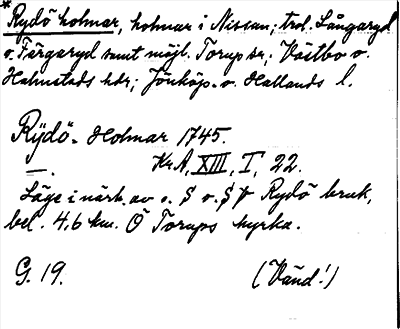 *Rydö holmar, holmar i Nissan; trol. Långaryd
o. Färgaryd samt möjl. Torup sr; Västbo o.
Halmstads hdr; Jönköp. o. Hallands l.
Rÿdö- Holmar 1745.
— . Kr.A, XIII, I, 22.
Läge i närh. av o. S o. S V Rydö bruk,
bel. 4,6 km. Ö Torups kyrka.
G. 19. (Vänd!)